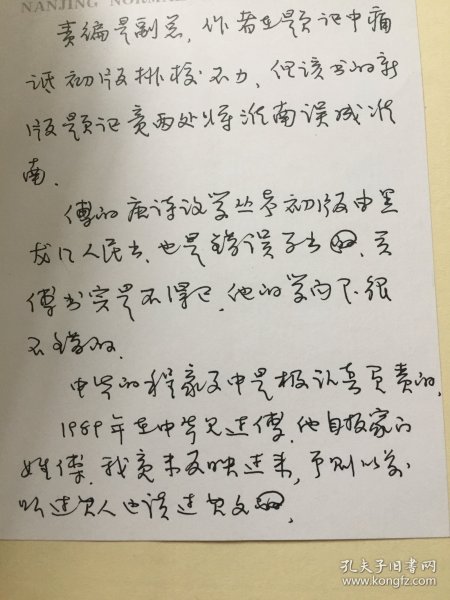 NANJING NORMAL
责编是副总，作者在题记中痛
诋初版排校不力，但该书的新
版题记竟两处将淮南误成淮
南.
傅的唐诗议学丛考初版由黑
龙江人民出，也是错误多出
傅书实是不得已，他的学问不很
不错的.
中华的程毅中是极认真负责的,
1989年在中华见过傅，他自报家门
姓傅，我竟未反映过来，予则以前
听过其人也读过其文
孔夫子旧书网
www.kongfz.com